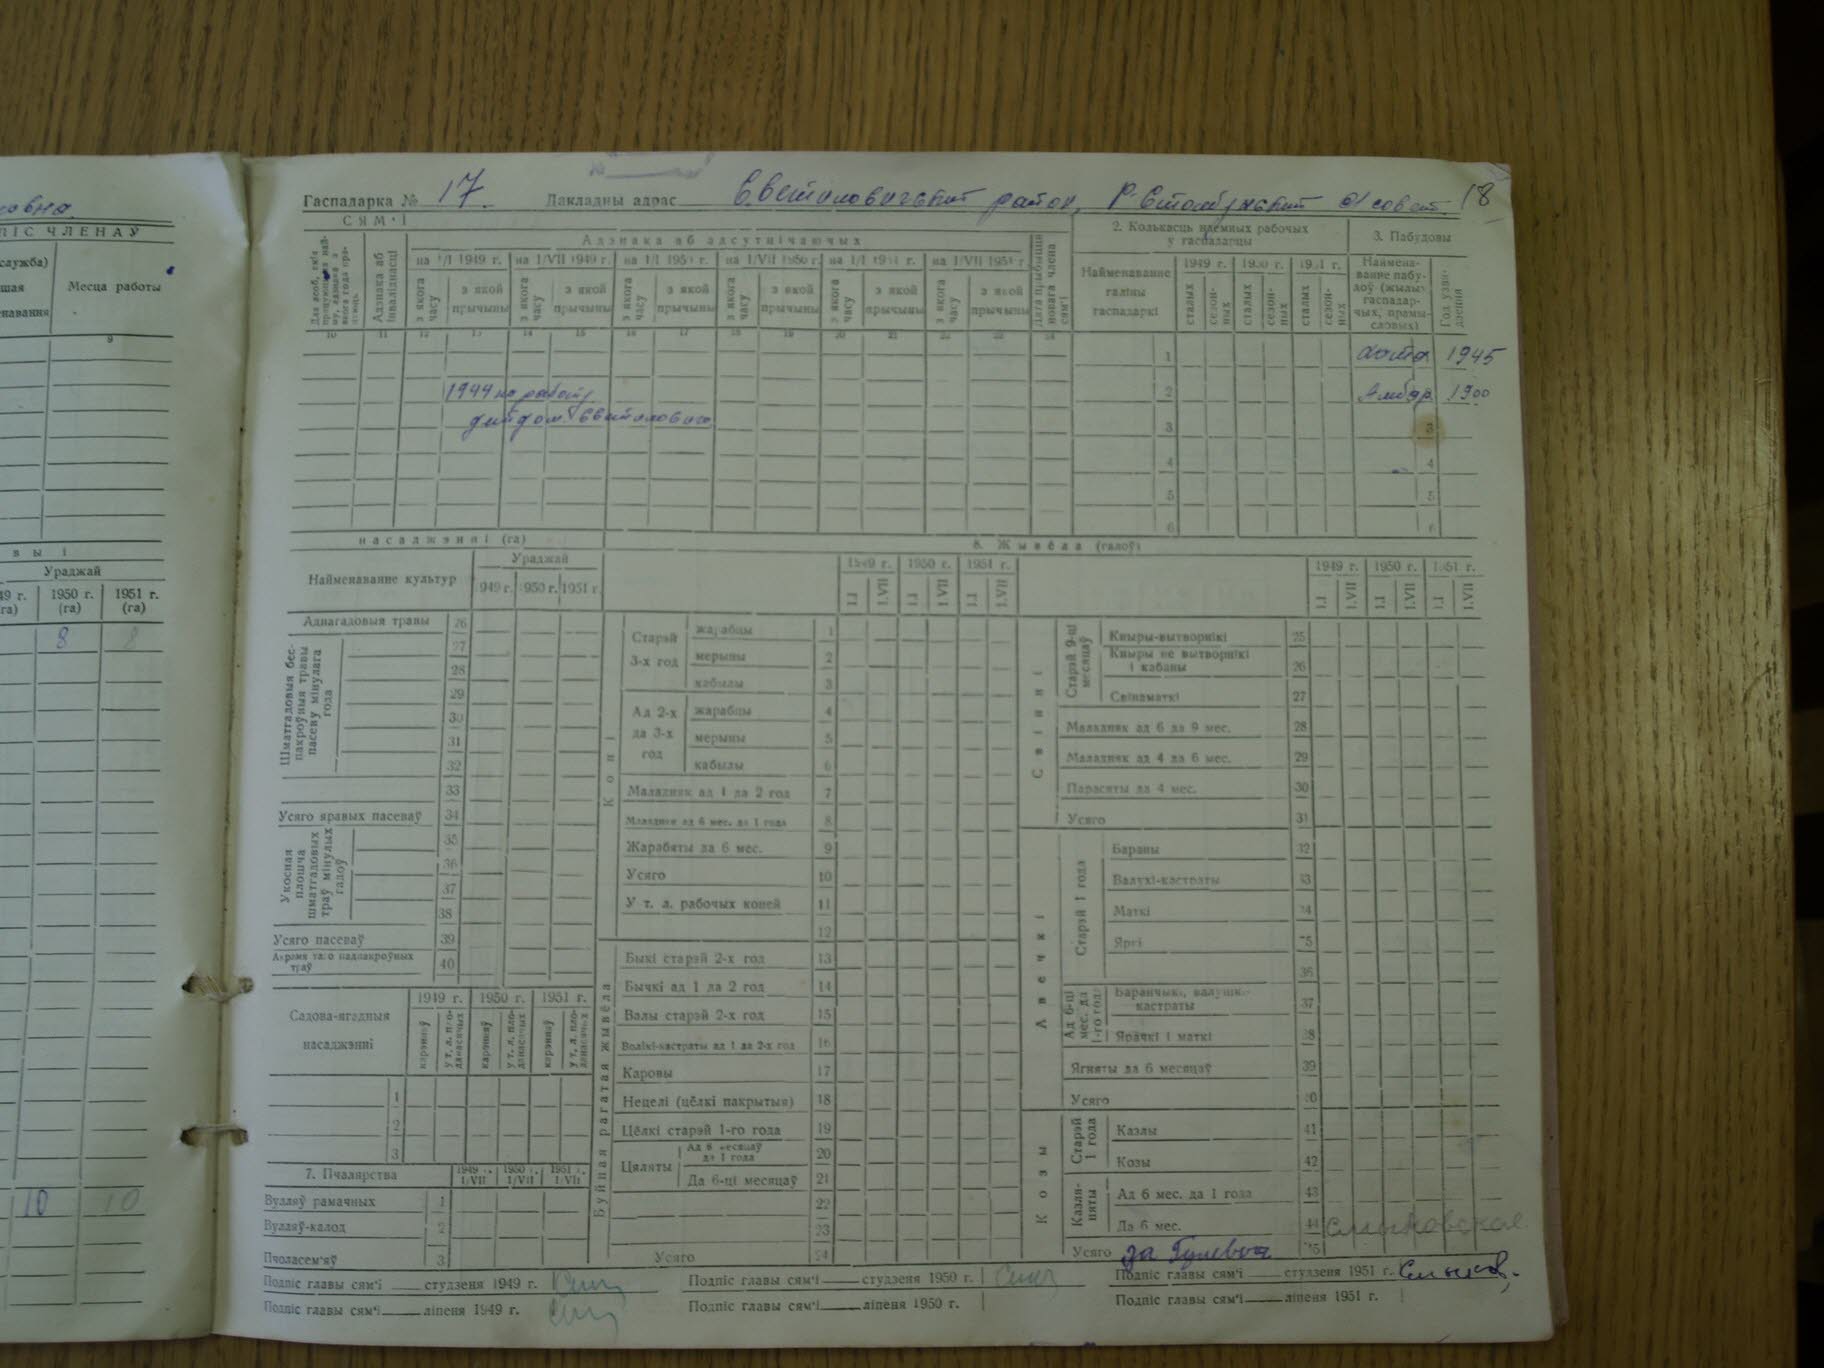 Гаспадарка № 17. Дакладны адрас район, 18
СЯМ'І
Адзнака аб адсутнічаючых
2. Колькасць наемных рабочых у гаспадарцы
3. Пабудовы
Адзнака аб інваліднасці
на 1/I 1949 г. на 1/VII 1949 г. на 1/I 1950 г. на 1/VII 1950 г. на 1/I 1951 г. на 1/VII 1951 г.
з якога часу з якой прычыны з якога часу з якой прычыны з якога часу з якой прычыны з якога часу з якой прычыны з якога часу з якой прычыны з якога часу з якой прычыны
Дата прыбыцця новага члена сям'і
Найменаванне галіны гаспадаркі
1949 г. 1950 г. 1951 г.
сталых сезонных сталых сезонных сталых сезонных
Найменаванне пабудоў (жылых, гаспадарчых, прамысловых)
Год узвядзення
10 11 12 13 14 15 16 17 18 19 20 21 22 23 24
1 хата 1945
1944 на работу
2 Амбар 1900
детдом
3 3
4 4
5 5
6 6
насаджэнні (га)
Найменаванне культур
Ураджай
1949 г. 1950 г. 1951 г.
Аднагадовыя травы 26
Шматгадовыя беспакроўныя травы пасеву мінулага года
27
28
29
30
31
32
33
Усяго яравых пасеваў 34
Укосная плошча шматгадовых траў мінулых гадоў
35
36
37
38
Усяго пасеваў 39
Акрамя таго падпакроўных траў 40
Садова-ягадныя насаджэнні
1949 г. 1950 г. 1951 г.
карэнняў у т. л. пладанасячых карэнняў у т. л. пладанасячых карэнняў у т. л. пладанасячых
1
2
3
7. Пчалярства 1949 г. 1/VII 1950 г. 1/VII 1951 г. 1/VII
Вулляў рамачных 1
Вулляў-калод 2
Пчоласем'яў 3
8. Жывёла (галоў)
1949 г. 1950 г. 1951 г.
1.I 1.VII 1.I 1.VII 1.I 1.VII
Коні
Старэй 3-х год
жарабцы 1
мерыны 2
кабылы 3
Ад 2-х да 3-х год
жарабцы 4
мерыны 5
кабылы 6
Маладняк ад 1 да 2 год 7
Маладняк ад 6 мес. да 1 года 8
Жарабяты да 6 мес. 9
Усяго 10
У т. л. рабочых коней 11
12
Буйная рагатая жывёла
Быкі старэй 2-х год 13
Бычкі ад 1 да 2 год 14
Валы старэй 2-х год 15
Волікі-кастраты ад 1 да 2-х год 16
Каровы 17
Нецелі (цёлкі пакрытыя) 18
Цёлкі старэй 1-го года 19
Цяляты
Ад 6 месяцаў да 1 года 20
Да 6-ці месяцаў 21
22
23
Усяго 24
1949 г. 1950 г. 1951 г.
1.I 1.VII 1.I 1.VII 1.I 1.VII
Свінні
Старэй 9-ці месяцаў
Кныры-вытворнікі 25
Кныры не вытворнікі і кабаны 26
Свінаматкі 27
Маладняк ад 6 да 9 мес. 28
Маладняк ад 4 да 6 мес. 29
Парасяты да 4 мес. 30
Усяго 31
Авечкі
Старэй 1 года
Бараны 32
Валухі-кастраты 33
Маткі 34
Яркі 35
36
Ад 6-ці мес. да 1-го года
Баранчыкі, валушкі-кастраты 37
Ярачкі і маткі 38
Ягняты да 6 месяцаў 39
Усяго 40
Козы
Старэй 1 года
Казлы 41
Козы 42
Казляняты
Ад 6 мес. да 1 года 43
Да 6 мес. 44
Усяго 45
Подпіс главы сям'і студзеня 1949 г. Подпіс главы сям'і студзеня 1950 г. Подпіс главы сям'і студзеня 1951 г.
Подпіс главы сям'і ліпеня 1949 г. Подпіс главы сям'і ліпеня 1950 г. Подпіс главы сям'і ліпеня 1951 г.
ПІС ЧЛЕНАЎ
служба)
Месца работы
9
Ураджай
49 г. (га) 1950 г. (га) 1951 г. (га)
8 8
10 10